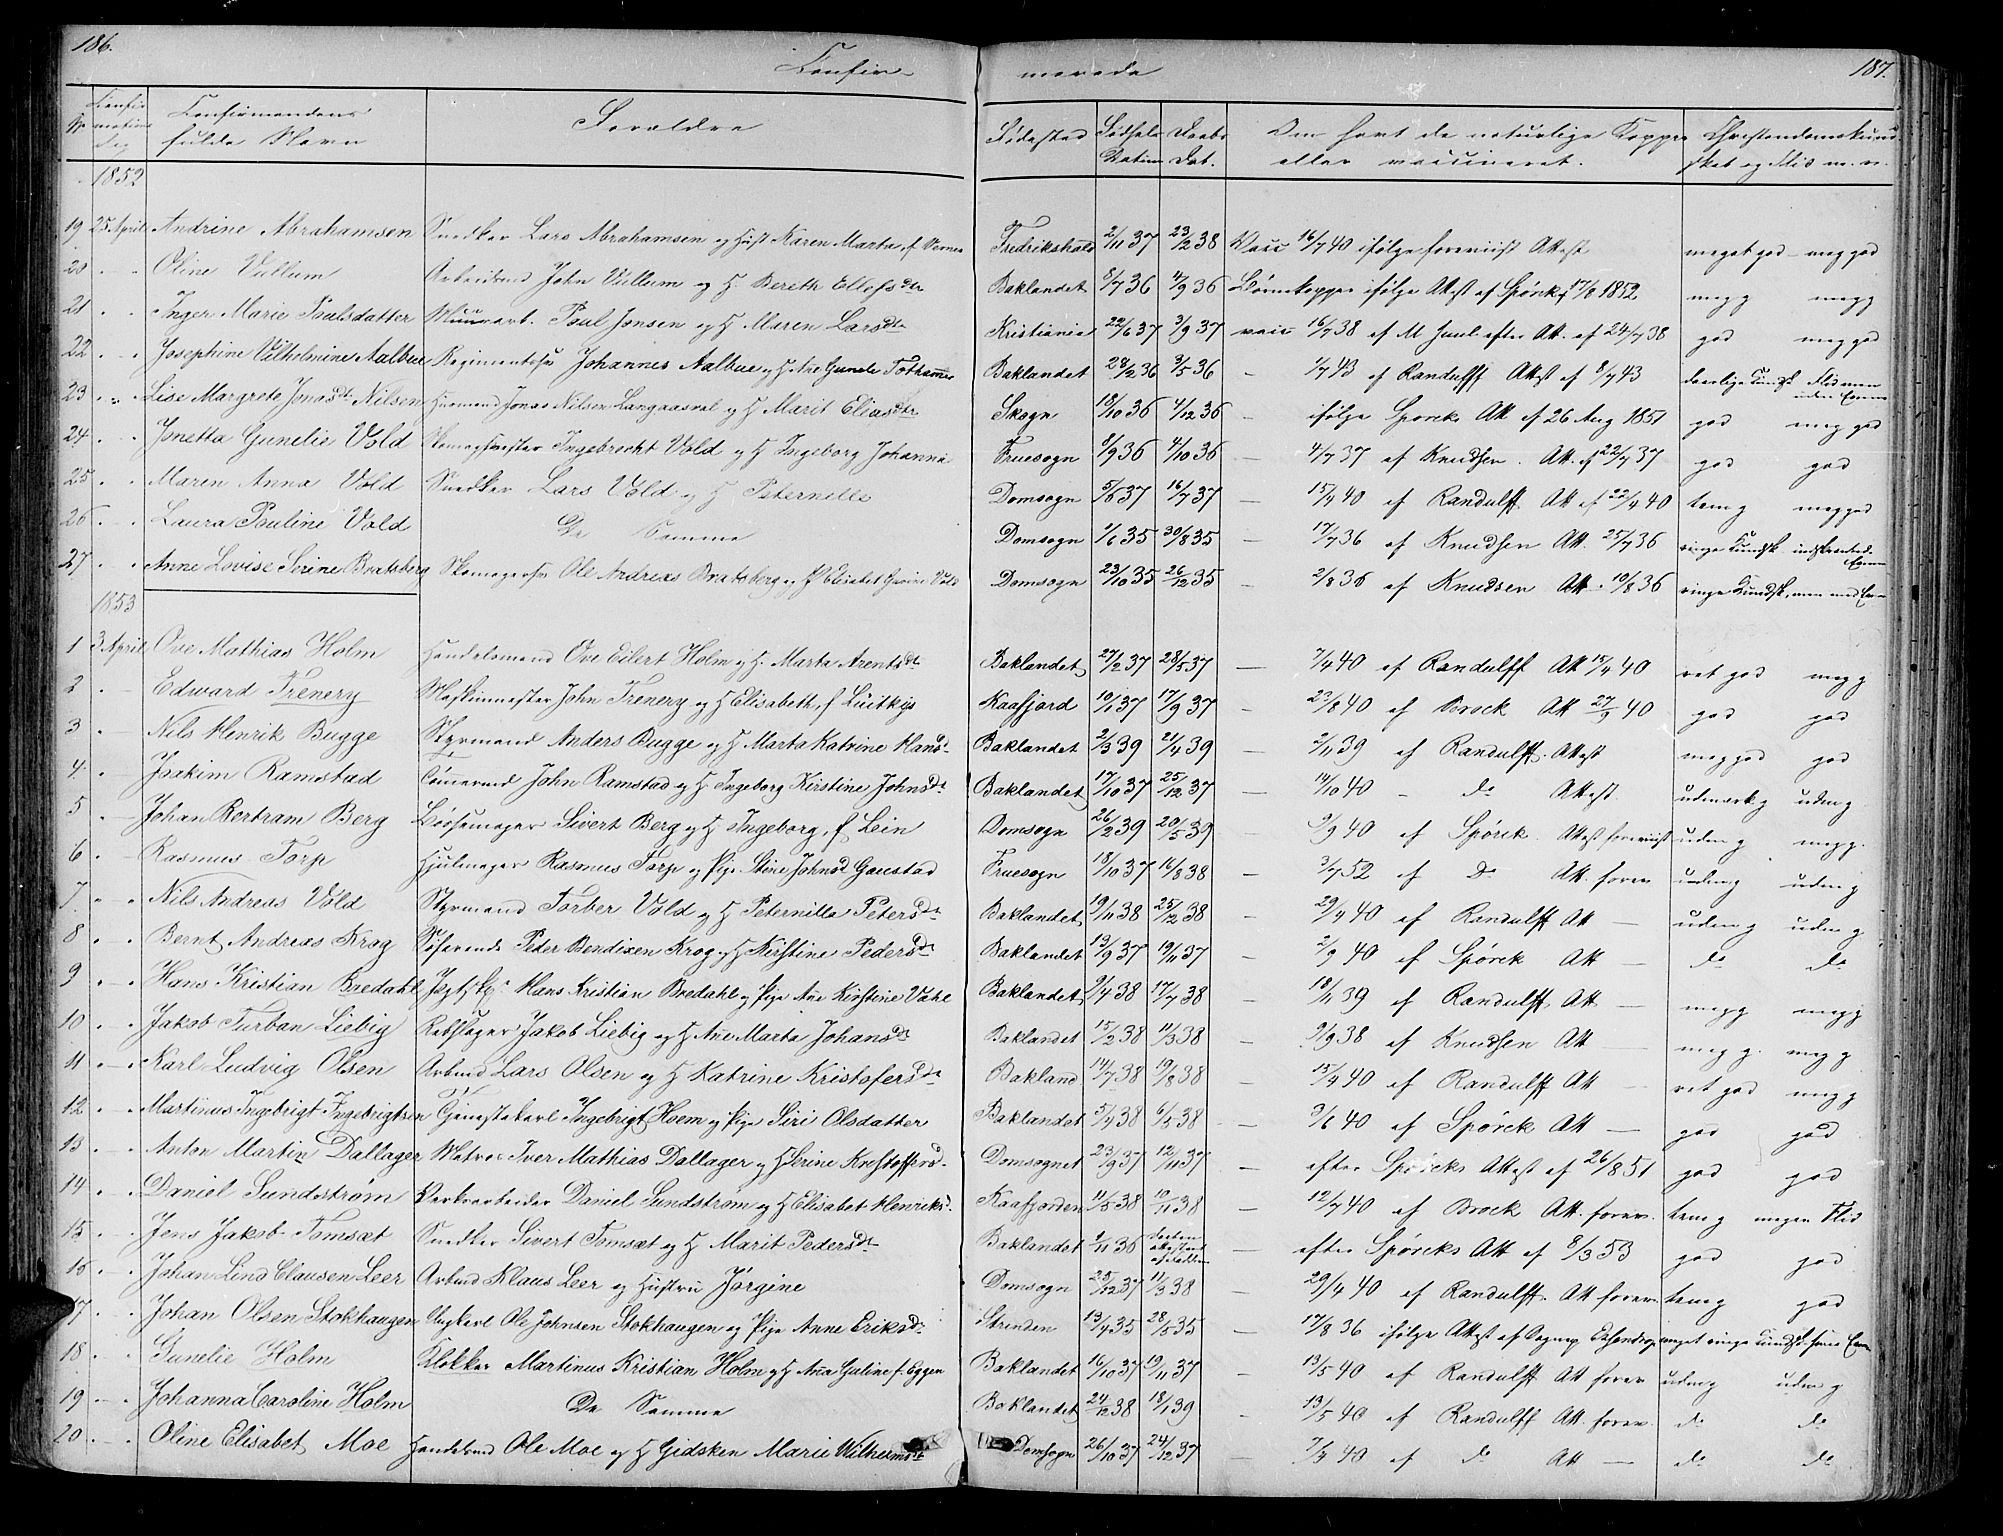 186.
Confir-
merede
187.
No
Confir
mations
Dag
Confirmandens
fulde Navn
Forældre
Fødested
Fødsels
Datum
Daabs
Dat.
Om havt de naturlige Kopper
eller vaccineret.
Christendomskund
skab og Flid m. v.
1852
19 25 April Andrine Abrahamsen Snedker Lars Abrahamsen og Hust Karen Marta f. Fredrikshald 2/11 37 23/2 38 Vacc 16/7 40 ifølge foreviist Attest meget god - meg god
20 " " Oline Vullum Arbeidsmd John Vullum og H. Bereth Ellefsdtr Baklandet 8/7 36 4/9 36 Børnekopper ifølge Attest af Spörck 17/8 1852 meg g meg g
21 " " Inger Marie Paulsdatter Muurarb. Poul Jonsen og H Maren Larsdtr Kristiania 22/6 37 3/9 37 vacc 16/7 38 af M Juul efter Att. af 24/7 38 god meg god
22 " " Josephine Vilhelmine Aalbue Johannes Aalbue og H Ane Gunele Baklandet 24/2 36 3/5 36 - 1/7 43 af Randulff Attest af 8/7 43 daarlige Kundsk Flid men uden Evne
23 " " Lise Margrete Jonasdtr Nilsen Huusmand Jonas Nilsen Langaasval og H Marit Eliasdtr Skogn 18/10 36 4/12 36 - ifølge Sporck Att af 26 Aug 1851 god meg god
24 " " Jonetta Gunelie Vold Ingebrecht Vold og H Ingeborg Johanna Fruesogn 9/9 36 4/10 36 - 4/7 37 af Knudsen. Att. af 22/7 37 god god
25 " " Maren Anna Vold Snedker Lars Vold og H Peternille Domsogn 5/6 37 16/7 37 - 15/4 40 af Randulff Att af 22/4 40 tem g meg god
26 " " Laura Pauline Vold De Samme Domsogn 1/6 35 30/8 35 - 17/7 36 af Knudsen Att. 25/7 36 ringe Kundsk indskrænked. Evne
27 " " Anne Lovise Serine Bratsberg Ole Andreas Bratsberg og H Elisabet Gurine Vold Domsogn 23/10 35 26/12 35 - 2/8 36 af Knudsen Att. 10/8 36 ringe Kundsk, men med Evne
1853
1 3 April Ove Mathias Holm Handelsmand Ove Eilert Holm og H. Marta Arentsdtr Baklandet 27/2 37 28/5 37 - 7/4 40 af Randulff Att 15/4 40 ret god meg g
2 " - Edward Trenery Maskinmester John Trenery og H Elisabeth, f Baklandet Kaafjord 10/1 37 17/9 37 - 23/8 40 af Brock Att 27/9 40 god god
3 " - Nils Henrik Bugge Styrmand Anders Bugge og H Marta Katrine Hansd Baklandet 2/3 39 21/4 39 - 2/11 39 af Randulff. Attest meg god god
4 " - Joakim Ramstad John Ramstad og H Ingeborg Kirstine Johnsdtr Baklandet 17/10 37 25/12 37 - 14/10 40 - do Attest udmærk g udm g
5 " - Johan Bertram Berg Bøssemager Sivert Berg og H Ingeborg, f Lein Domsogn 26/2 39 20/5 39 - 9/9 40 af Spörck. Attest foreviist udm g meg g.
6 " - Rasmus Torp Hjulmager Rasmus Torp og Pige Stine Johnsd Gaustad Fruesogn 18/10 37 16/8 38 - 3/7 52 af Do Att. forev udm g udm g
7 " " Nils Andreas Vold Styrmand Torber Vold og H Peternilla Petersdtr Baklandet 19/11 38 25/12 38 - 29/4 40 af Randulff Att - udm g udm g
8 " - Bernt Andreas Krog Søfarende Peder Bendixen Krog og H Kirstine Pedersdtr Baklandet 13/9 37 19/11 37 - 2/9 40 af Spörck Att - do do
9 " - Hans Kristian Bredahl Hans Kristian Bredahl og Pige Ane Kirstine Vahl Baklandet 9/4 38 17/7 38 - 18/11 39 af Randulff Att - meg g meg g
10 " - Jakob Turban Liebig Rebslager Jakob Liebig og H Ane Marta Johansdtr Baklandet 15/2 38 11/3 38 - 9/9 38 af Knudsen Att - meg g. meg g
11 " - Karl Ludvig Olsen Arbmd Lars Olsen og H Katrine Kristofersdtr Bakland 14/7 38 19/8 38 - 15/4 40 af Randulff Att - ret god meg g
12 " - Martinus Ingebrigt Ingebrigtsen Gjenestekarl Ingebrigt Hoem og Pige Siri Olsdatter Baklandet 5/4 38 6/5 38 - 9/6 40 af Spörck Att - god god
13 " - Anton Martin Dallager Matros Iver Mathias Dallager og H Serine Kristoffersd. Domsognet 23/9 37 12/11 37 - efter Spörcks Attest af 26/8 51 god god
14 " - Daniel Sundstrøm Værkarbeider Daniel Sundstrøm og H Elisabet Henriksd. Kaafjorden 11/5 38 10/11 38 - 12/7 40 af Brock Att. forev. tem g megen Flid
15 " - Jens Jakob Tomsæt Snedker Sivert Tomsæt og H Marit Pedersdtr Baklandet 2/11 36 Daaben attesteret af Fadderne - efter Spörcks Att af 8/3 53 god god
16 " - Johan Lind Clausen Leer Arbmd Klaus Leer og Hustru Jørgine Domsogn 25/12 37 11/3 38 - 29/4 40 af Randulff. Att forev. tem g god
17 " - Johan Olsen Stokhaugen Ungkarl Ole Johnsen Stokhaugen og Pige Anne Eriksdtr Strinden 13/4 35 28/5 35 - 17/8 36 ifølge Attest af meget ringe Kundsk. Evne
18 " - Gunelie Holm Klokker Martinus Kristian Holm og H Ana Gulina f. Eggen Baklandet 16/10 37 19/11 37 - 13/5 40 af Randulff Att forev udm g udm g
19 " - Johanna Caroline Holm De Samme Baklandet 24/12 38 18/1 39 - 13/5 40 af Randulff Att. forev. do do
20 " - Oline Elisabet Moe Handelsmd Ole Moe og H Gidsken Marie Wilhelmsdtr Domsogn 26/10 37 24/12 37 - 7/4 40 af do Att - do do